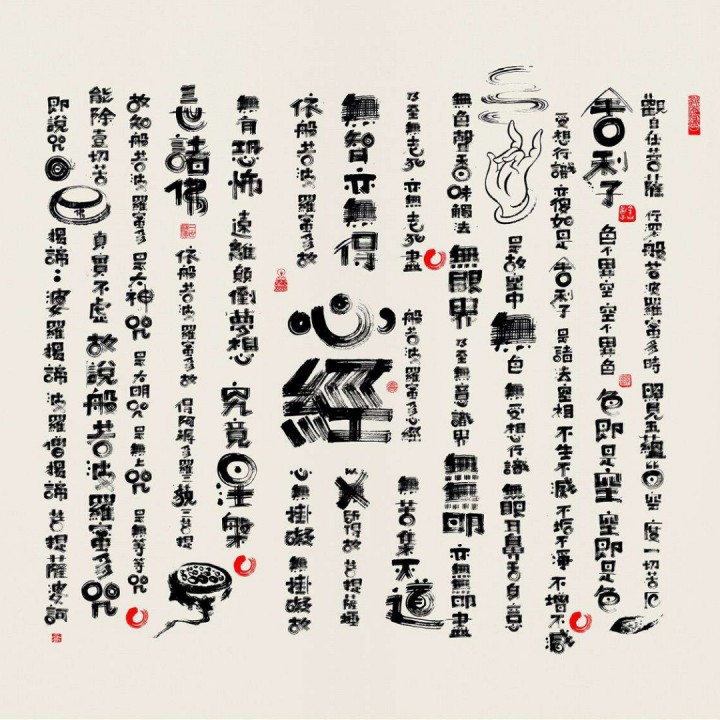 觀自在菩薩 行深般若波羅蜜多時 照見五蘊皆空 度一切苦厄
舍利子 色不異空 空不異色 色即是空 空即是色
受想行識 亦復如是 舍利子 是諸法空相 不生不滅 不垢不淨 不增不減
是故空中無色 無受想行識 無眼耳鼻舌身意
無色聲香味觸法 無眼界 乃至無意識界 無無明 亦無無明盡
乃至無老死 亦無老死盡
般若波羅蜜多心經
無苦集滅道
無智亦無得
心經
以所得故 菩提薩埵
依般若波羅蜜多故
心無掛礙 無掛礙故
無有恐怖 遠離顛倒夢想 究竟涅槃
三世諸佛 依般若波羅蜜多故 得阿耨多羅三藐三菩提
故知般若波羅蜜多 是大神咒 是大明咒 是無上咒 是無等等咒
能除壹切苦 真實不虛 故說般若波羅蜜多咒
即說咒曰 揭諦：婆羅揭諦 波羅僧揭諦 菩提薩婆訶